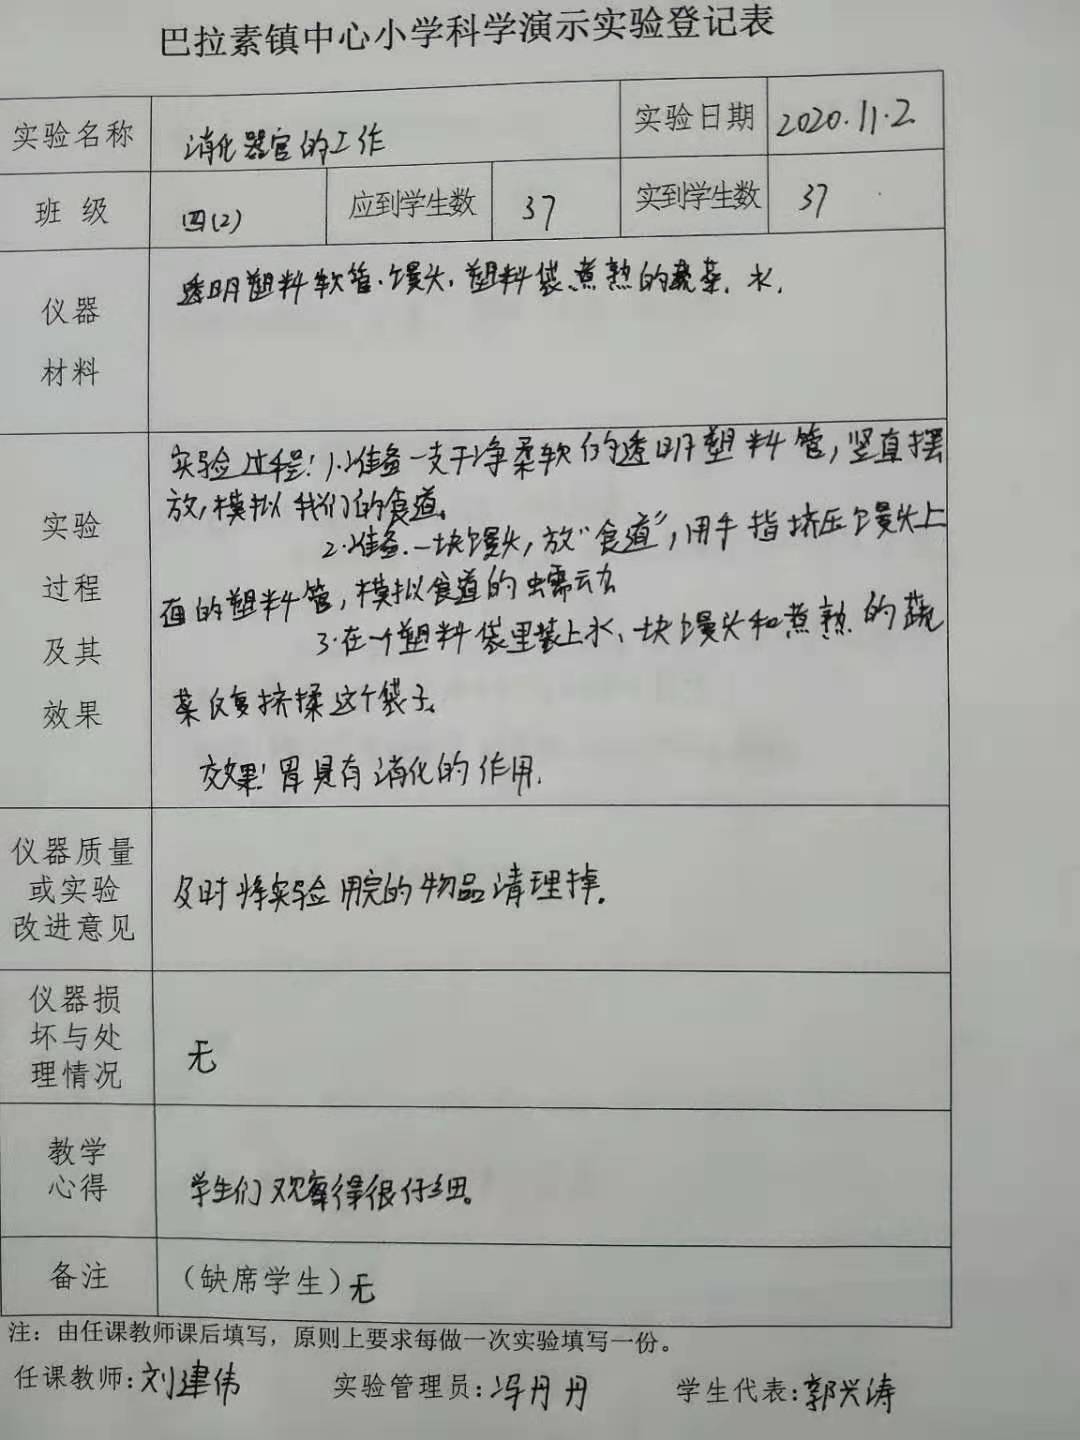 巴拉素镇中心小学科学演示实验登记表
实验名称 消化器官的工作 实验日期 2020.11.2
班 级 四(2) 应到学生数 37 实到学生数 37
仪器
材料
透明塑料软管、馒头、塑料袋、煮熟的蔬菜、水.
实验
过程
及其
效果
实验过程: 1.准备一支干净柔软的透明塑料管,竖直摆
放,模拟我们的食道。
2.准备一块馒头,放“食道”,用手指挤压馒头上
面的塑料管,模拟食道的蠕动
3.在一个塑料袋里装上水、一块馒头和煮熟的蔬
菜反复挤揉这个袋子。
效果: 胃具有消化的作用.
仪器质量
或实验
改进意见
及时将实验用完的物品清理掉.
仪器损
坏与处
理情况
无
教学
心得
学生们观察得很仔细。
备注 (缺席学生) 无
注：由任课教师课后填写，原则上要求每做一次实验填写一份。
任课教师:刘建伟 实验管理员:冯丹丹 学生代表:郭兴涛